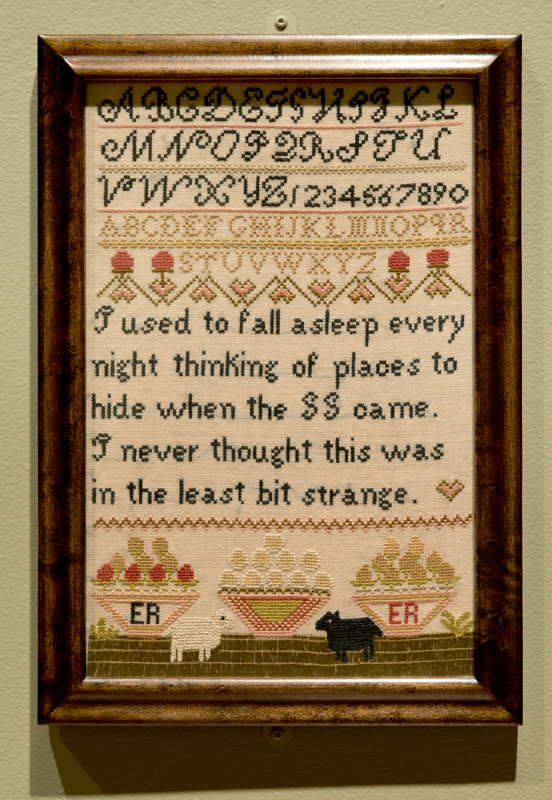 ABCDEFGHIJKL
MNOPQRSTU
VWXYZ1234567890
ABCDEFGHIJKLMNOPQR
STUVWXYZ
I used to fall asleep every
night thinking of places to
hide when the SS came.
I never thought this was
in the least bit strange.
ER ER